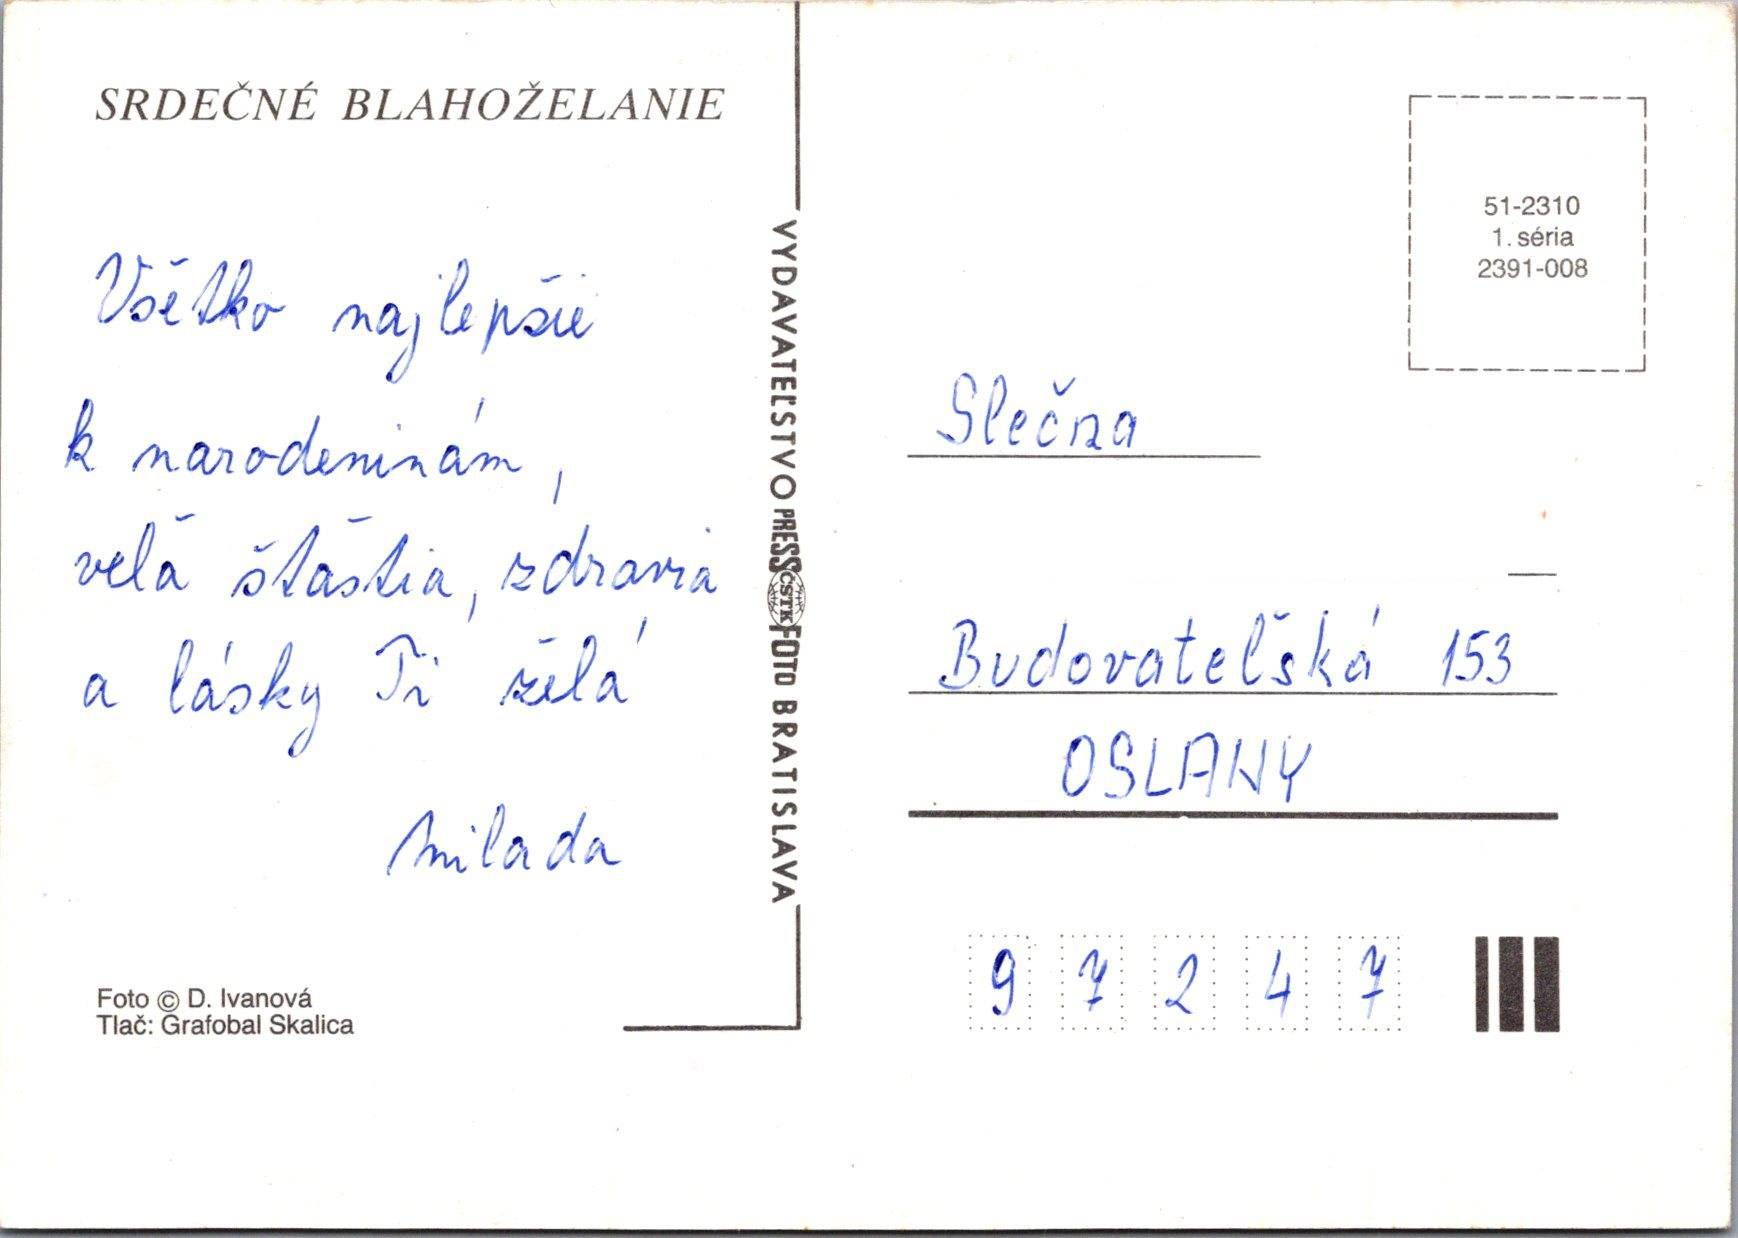 SRDEČNÉ BLAHOŽELANIE
Všetko najlepšie
k narodeninám,
veľa šťastia, zdravia
a lásky Ti želá
Milada
Foto © D. Ivanová
Tlač: Grafobal Skalica
VYDAVATEĽSTVO PRESSFOTO BRATISLAVA
ČSTK
51-2310
1. séria
2391-008
Slečna
Budovateľská 153
OSLANY
97247